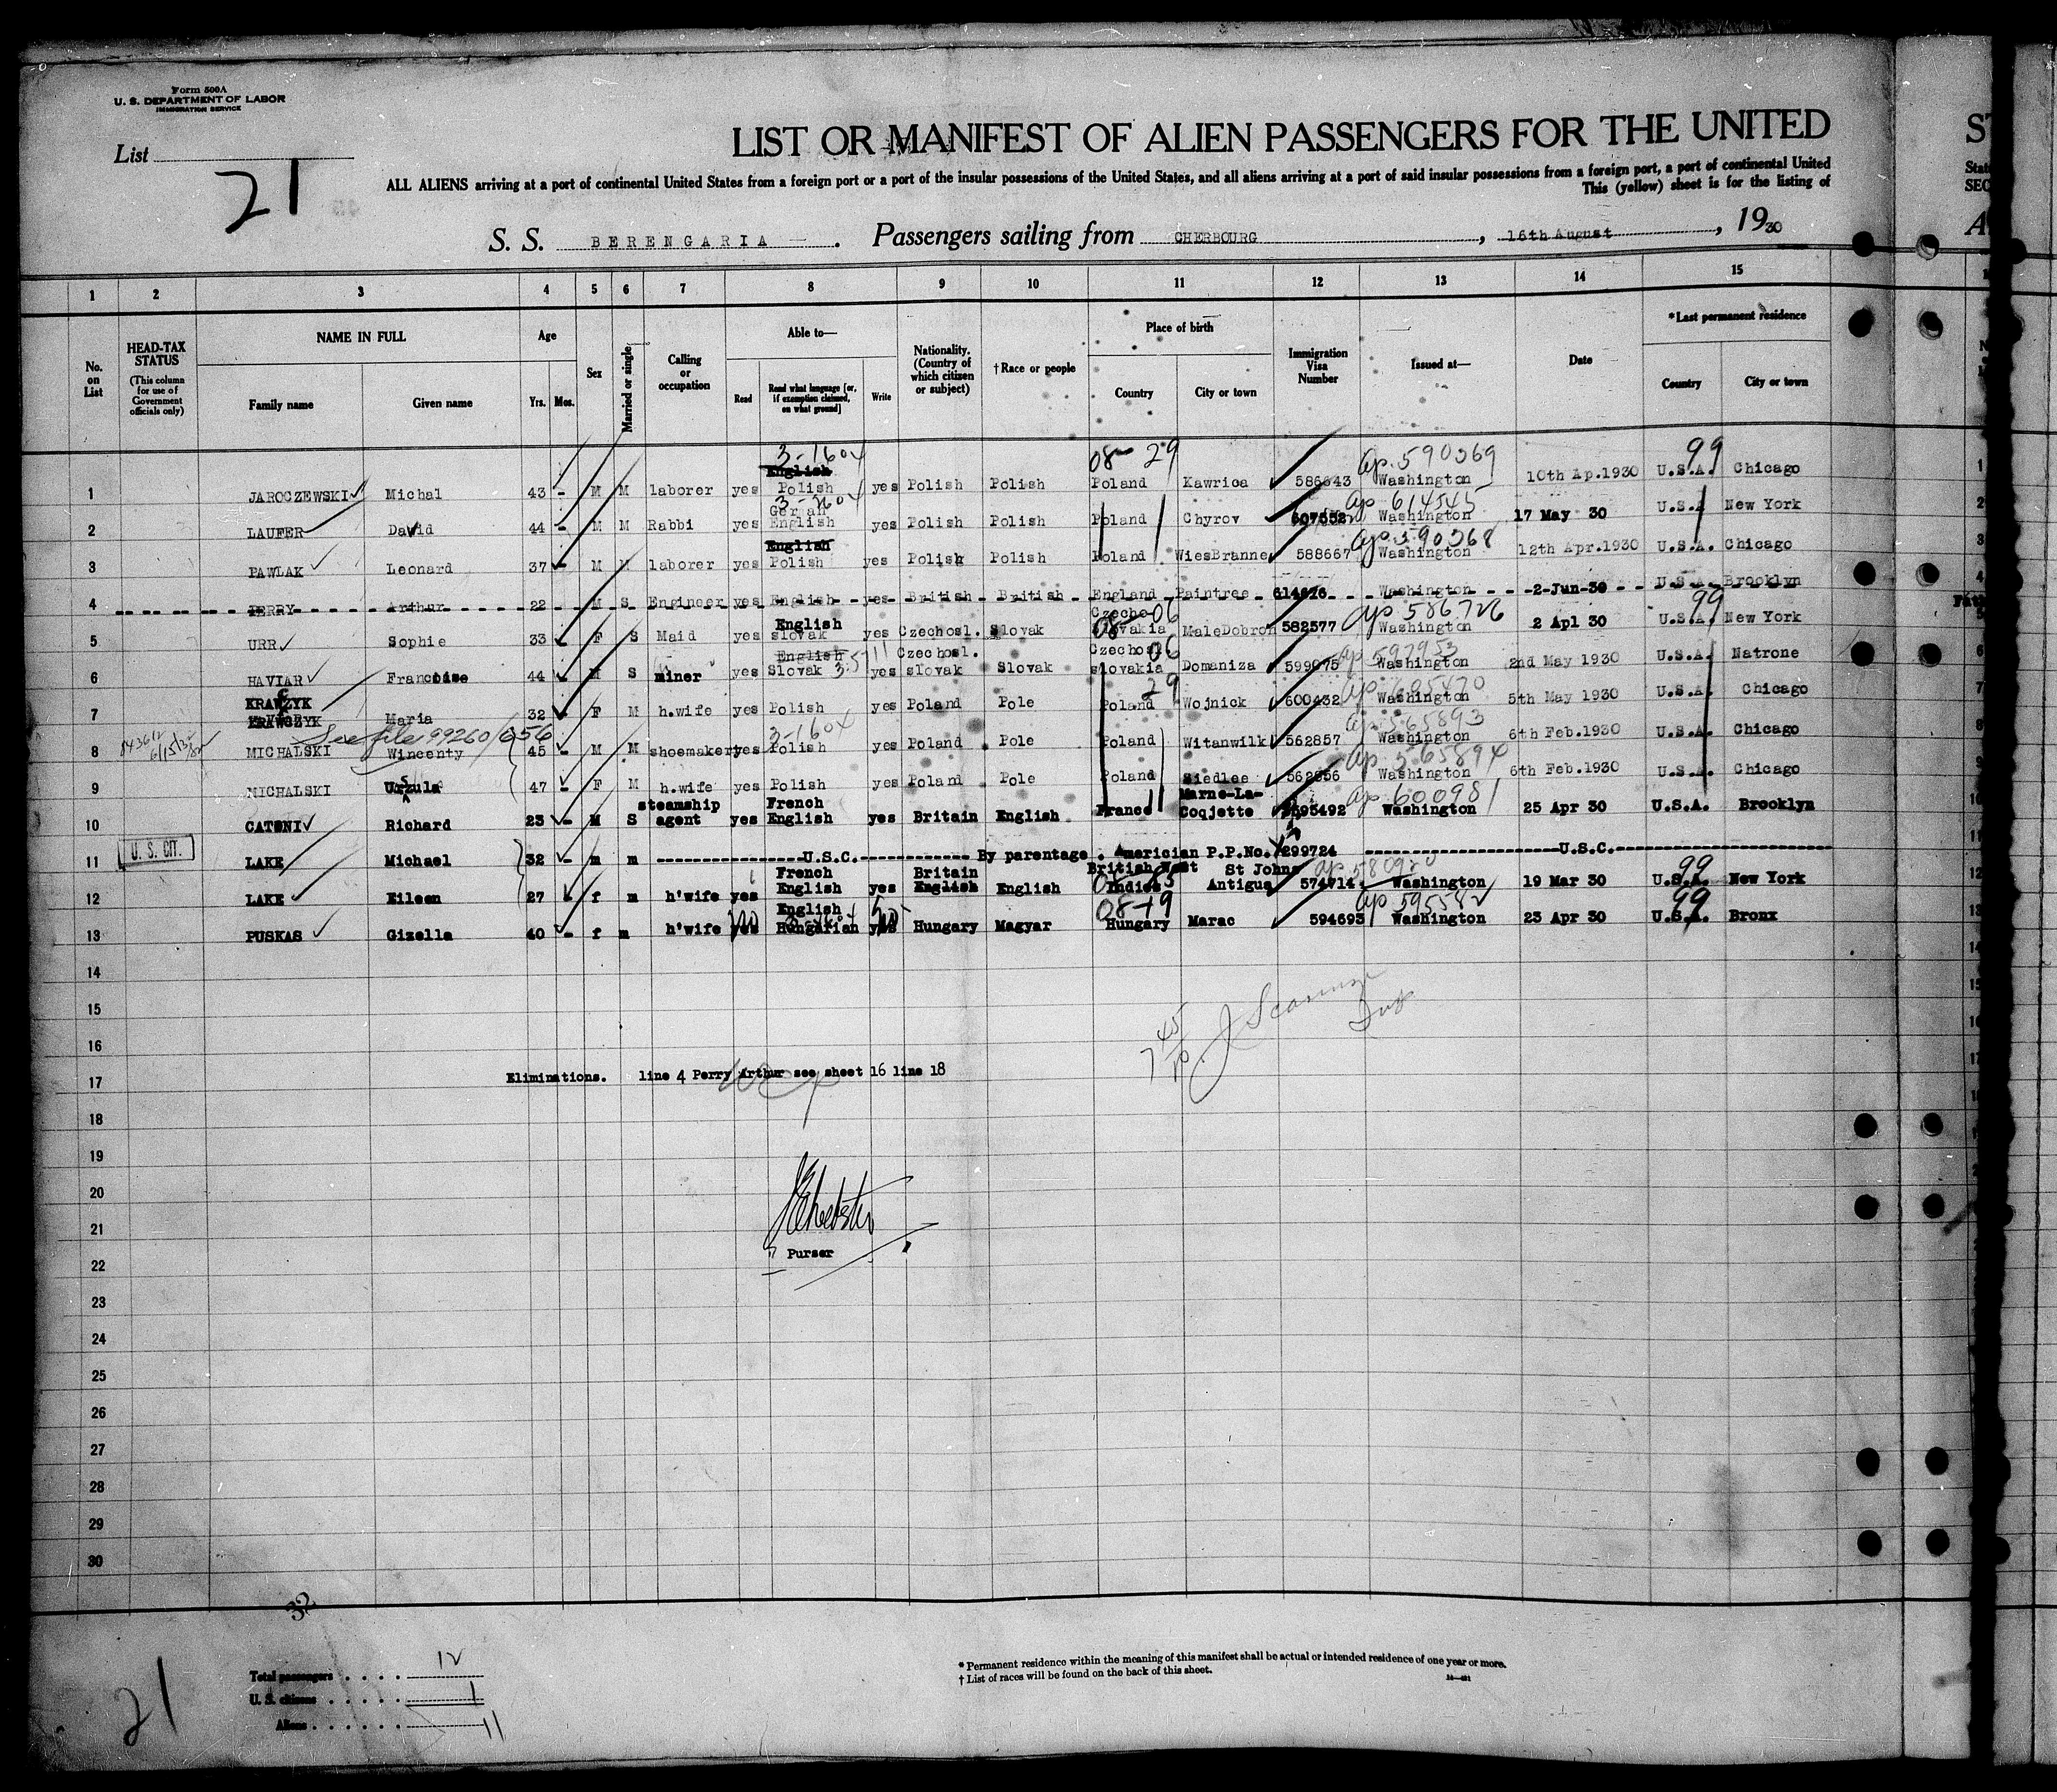 Form 500A
U. S. DEPARTMENT OF LABOR
IMMIGRATION SERVICE
List 21
LIST OR MANIFEST OF ALIEN PASSENGERS FOR THE UNITED
ALL ALIENS arriving at a port of continental United States from a foreign port or a port of the insular possessions of the United States, and all aliens arriving at a port of said insular possessions from a foreign port, a port of continental United
This (yellow) sheet is for the listing of
S. S. BERENGARIA . Passengers sailing from CHERBOURG , 16th August , 1930
1 2 3 4 5 6 7 8 9 10 11 12 13 14 15
No. on List
HEAD-TAX STATUS (This column for use of Government officials only)
NAME IN FULL
Family name Given name
Age
Yrs. Mos.
Sex
Married or single
Calling or occupation
Able to—
Read Read what language [or, if exemption claimed, on what ground] Write
Nationality. (Country of which citizen or subject)
† Race or people
Place of birth
Country City or town
Immigration Visa Number
Issued at—
Date
*Last permanent residence
Country City or town
3-1604 08- 29 ap. 590369 99
1 JAROCZEWSKI Michal 43 - M M laborer yes English Polish yes Polish Polish Poland Kawrica 586643 Washington 10th Ap.1930 U.S.A. Chicago
ap 614545
2 LAUFER David 44 - M M Rabbi yes German English yes Polish Polish Poland Chyrov Washington 17 May 30 U.S.A New York
ap 590368
3 PAWLAK Leonard 37 - M M laborer yes English Polish yes Polish Polish Poland WiesBranne 588667 Washington 12th Apr.1930 U.S.A. Chicago
4 PERRY Arthur 22 M S Engineer yes English yes British British England Paintree 614676 Washington 2-Jun-30 U.S.A. Brooklyn
06 ap 586726 99
5 URR Sophie 33 F S Maid yes English slovak yes Czechosl. Slovak Czecho Slovakia MaleDobron 582577 Washington 2 Apl 30 U.S.A. New York
06 ap 597953
6 HAVIAR Francoise 44 M S miner yes English Slovak yes Czechosl. slovak Slovak Czechosl slovakia Domaniza 599075 Washington 2nd May 1930 U.S.A. Natrone
29
7 KRAWZYK KRAWCZYK Maria 32 F M h.wife yes Polish yes Poland Pole Poland Wojnick 600432 Washington 5th May 1930 U.S.A. Chicago
See file 99260/656 3-1604 ap 565893
8 MICHALSKI Wincenty 45 - M M shoemaker yes Polish yes Poland Pole Poland Witanwilk 562857 Washington 6th Feb.1930 U.S.A. Chicago
ap 565894
9 MICHALSKI Urzula 47 - F M h.wife yes Polish yes Poland Pole Poland Siedlee 562856 Washington 6th Feb.1930 U.S.A. Chicago
ap 600981
10 CATONI Richard 23 - M S steamship agent yes French English yes Britain English France Marne-La-Coqjette 595492 Washington 25 Apr 30 U.S.A. Brooklyn
U. S. CIT.
11 LAKE Michael 32 - m m U.S.C. By parentage . Americian P.P.No. 299724 U.S.C.
99
12 LAKE Eileen 27 - f m h'wife yes French English yes Britain English English British West Indies St Johns Antigua 574714 Washington 19 Mar 30 U.S.A. New York
no no 08-19 ap 595582 99
13 PUSKAS Gizella 40 - f m h'wife yes English Hungarian yes Hungary Magyar Hungary Marac 594693 Washington 23 Apr 30 U.S.A. Bronx
14
15
16
17 Eliminations. line 4 Perry Arthur see sheet 16 line 18
18
19
20
21
Purser
22
23
24
25
26
27
28
29
30
32
Total passengers . . . . 12
U. S. citizens . . . . . 1
Aliens . . . . . . 11
21
* Permanent residence within the meaning of this manifest shall be actual or intended residence of one year or more.
† List of races will be found on the back of this sheet.